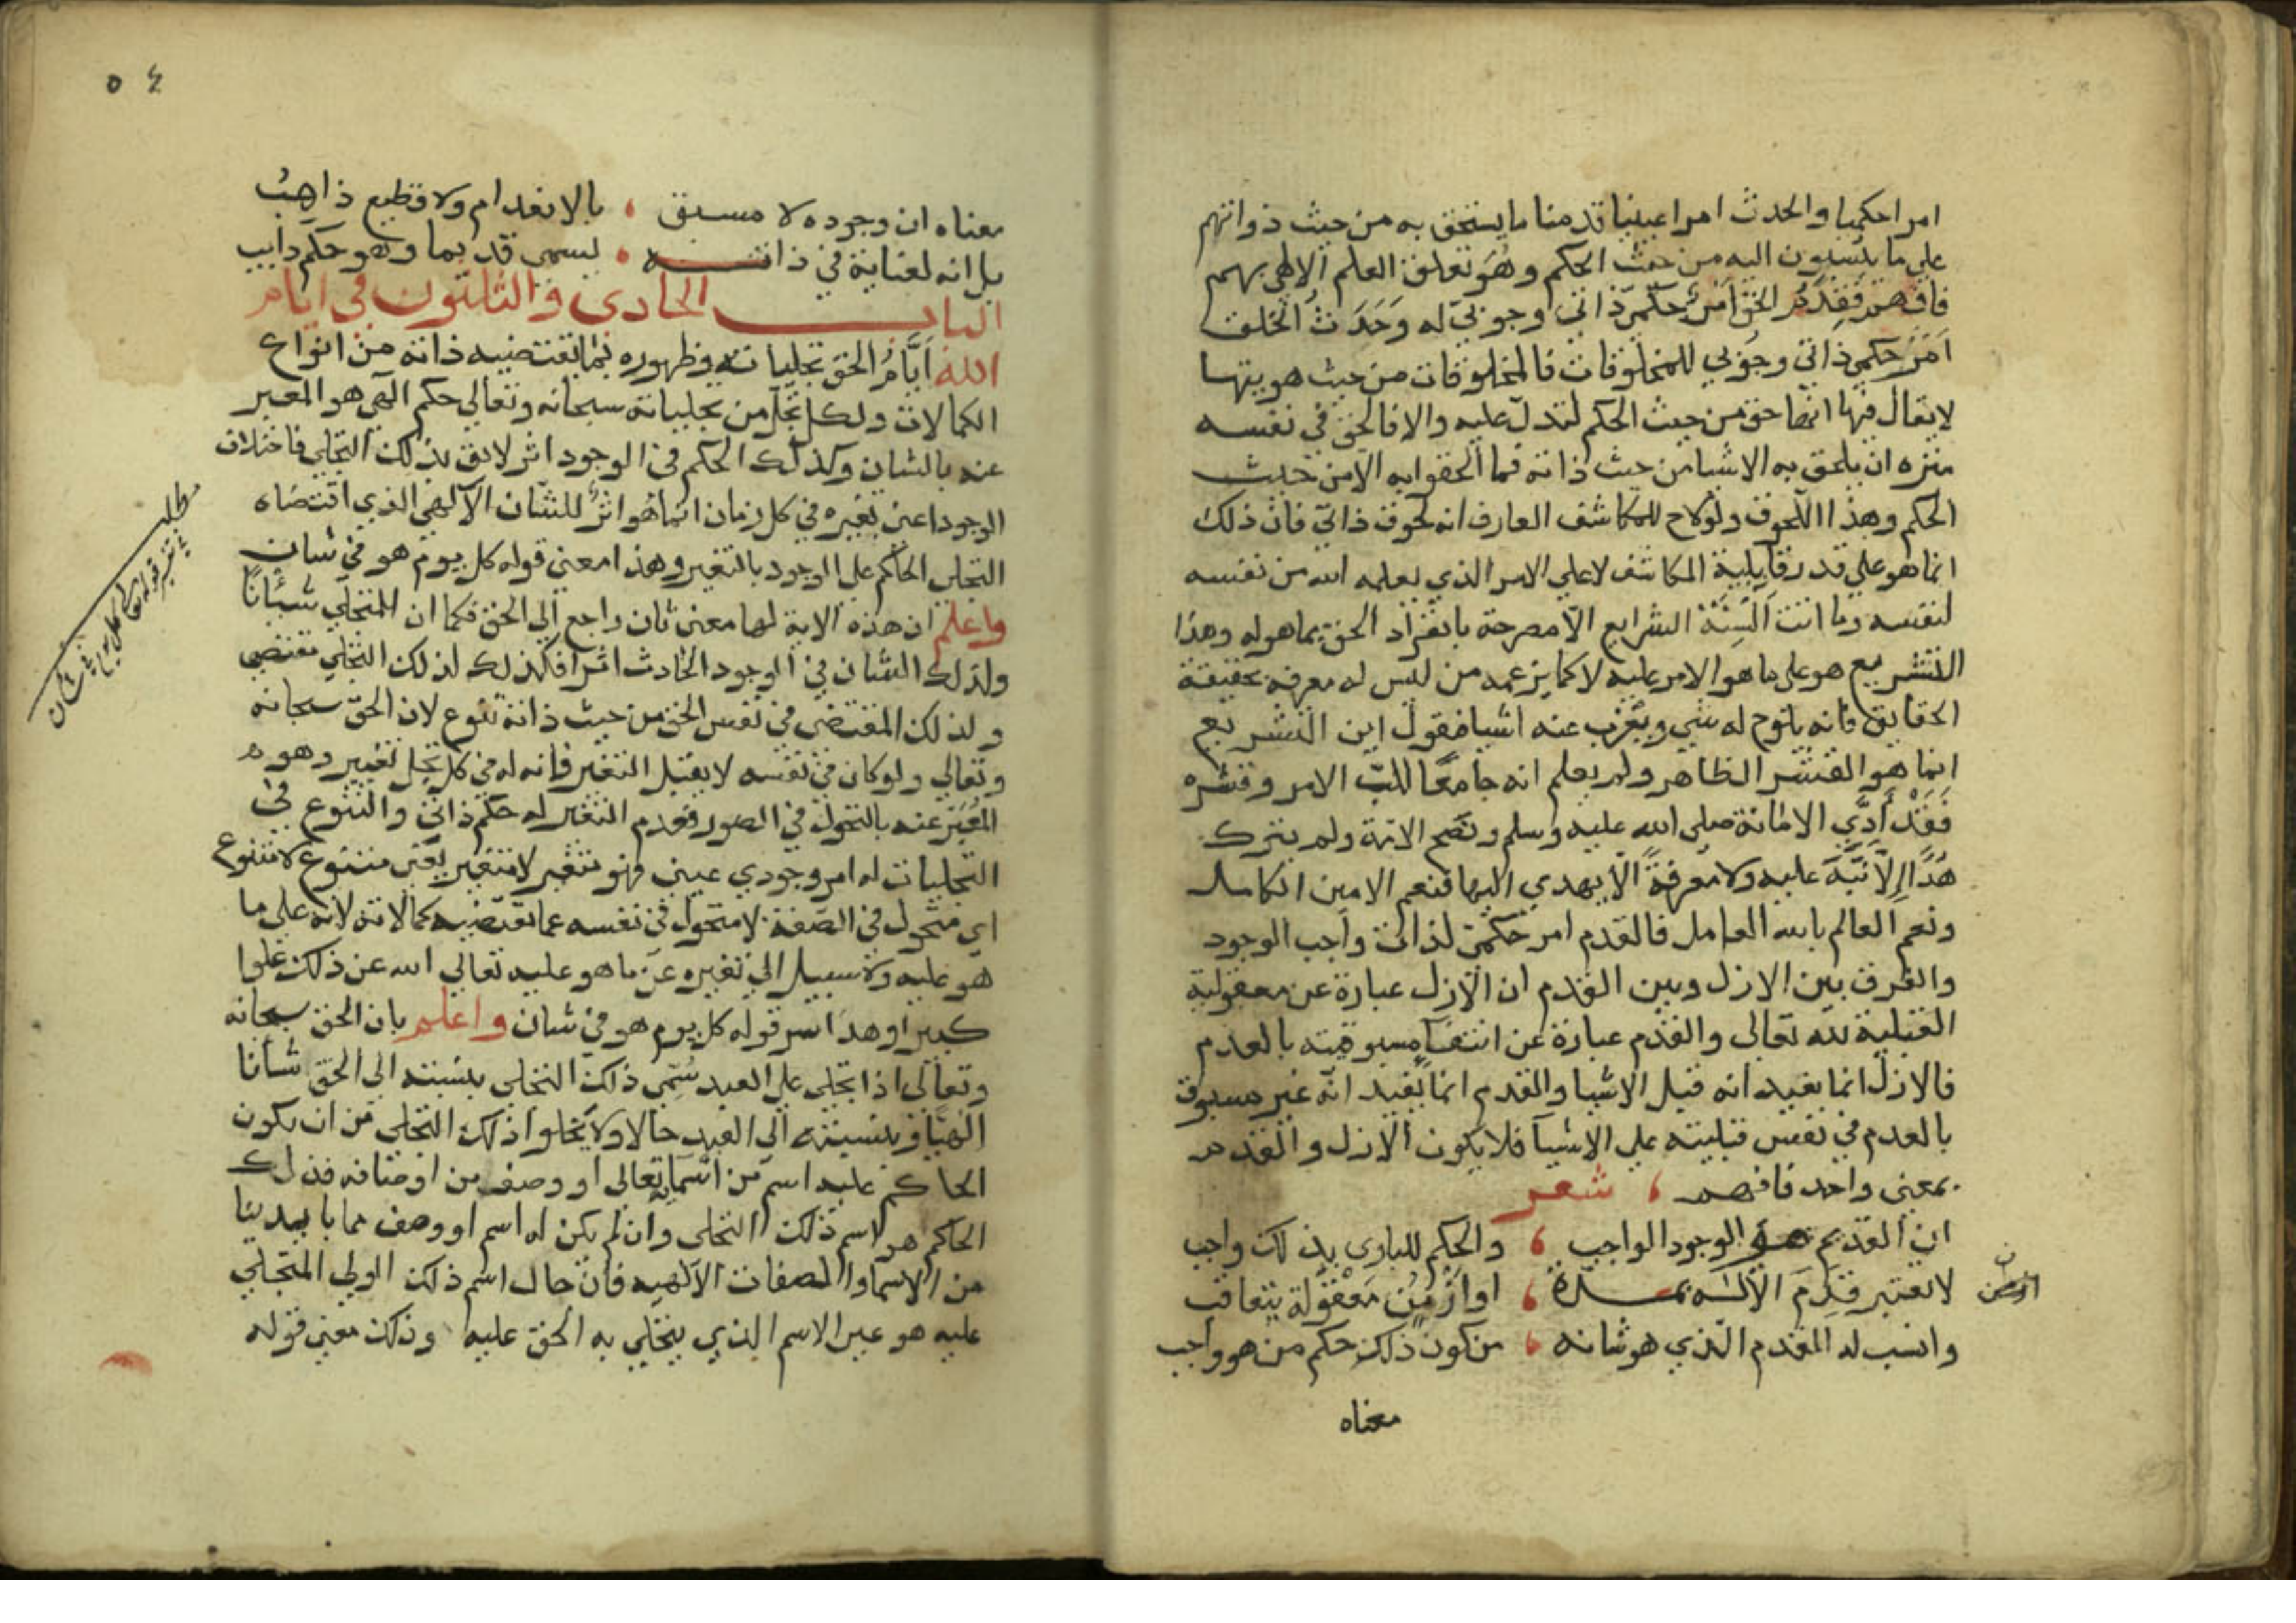 امرا حكميا والحدث امرا عينيا قدمنا ما يستحق به من حيث ذواتهم
على ما ينسبون اليه من حيث الحكم وهو تعلق العلم الالهي بهم
فافهم فقدم الحق امر حكمي ذاتي وجوبي له وحدث الخلق
امر حكمي ذاتي وجوبي للمخلوقات فالمخلوقات من حيث هويتها
لا يقال فيها انها حق من حيث الحكم لتدل عليه والا فالحق في نفسه
منزه ان يلحق به الاشيا من حيث ذاته فما الحقوا به الا من حيث
الحكم وهذا اللحوق ولو لاح للمكاشف العارف انه لحوق ذاتي فان ذلك
انما هو على قدر قابلية المكاشف لا على الامر الذي يعلمه الله من نفسه
لنفسه وما اتت السنة الشرايع الا مصرحة بانفراد الحق بما هو له وهذا
التشريع هو على ما هو الامر عليه لا كما يزعمه من ليس له معرفة بحقيقة
الحقايق فانه يلوح له شي ويعزب عنه اشيا فيقول اين التشريع
انما هو القشر الظاهر ولم يعلم انه جامعا للب الامر وقشره
فقد أدي الامانة صلى الله عليه وسلم ونصح الامة ولم يترك
هدا الا نبه عليه ولا معرفة الا يهدي اليها فنعم الامين الكامل
ونعم العالم بالله العامل فالقدم امر حكمي لذات واجب الوجود
والفرق بين الازل وبين القدم ان الازل عبارة عن معقولية
القبلية لله تعالى والقدم عبارة عن انتفا مسبوقيته بالعدم
فالازل انما يفيد انه قبل الاشيا والقدم انما يفيد انه غير مسبوق
بالعدم في نفس قبليته على الاشيا فلا يكون الازل والقدم
بمعني واحد فافهم ، شعر
ان القديم هو الوجود الواجب ، والحكم للباري بذلك واجب
لا تعتبر قدم الاله بمدة ، او ازمن معقولة يتعاقب
وانسب له القدم الذي هو شانه ، من كون ذلك حكم من هو واجب
معناه
٥٤
معناه ان وجوده لا مسبق ، بالانعدام ولا قطيع ذاهب
بل انه لغنايه في ذاته ، ليسمى قديما وهو حكم دايب
الباب الحادي والثلثون في ايام
الله ايام الحق تجلياته وظهوره بما يقتضيه ذاته من انواع
الكمالات ولكل تجل من تجلياته سبحانه وتعالي حكم الهي هو المعبر
عنه بالشان وكذلك الحكم في الوجود اثر لايق بذلك التجلي فاختلاف
الوجود اعني تغيره في كل زمان انما هو اثر للشان الالهي الذي اقتضاه
التجلي الحاكم على الوجود بالتغير وهذا معني قوله كل يوم هو في شان
واعلم ان هذه الاية لها معني ثان راجع الي الحق فكما ان للتجلي شئانا
ولذلك الشان في الوجود الحادث اثرا فكذلك لذلك التجلي مقتضي
ولذلك المقتضي في نفس الحق من حيث ذاته تنوع لان الحق سبحانه
وتعالي ولو كان في نفسه لا يقبل التغير فانه له في كل تجل تغيير وهو
المعبر عنه بالتحول في الصور فعدم التغير له حكم ذاتي والتنوع في
التجليات له امر وجودي عيني فهو متغير لا متغير يعني متنوع لا متنوع
اي متحول في الصفة لا متحول في نفسه عما تقتضيه كمالاته لانه على ما
هو عليه ولا سبيل الى تغيره عن ما هو عليه تعالي الله عن ذلك علوا
كبيرا وهذا سر قوله كل يوم هو في شان واعلم بان الحق سبحانه
وتعالى اذا تجلى على العبد سمي ذلك التجلي بنسبته الى الحق شانا
الهيا وبنسبته الى العبد حالا ولا يخلوا ذلك التجلي من ان يكون
الحاكم عليه اسم من اسمايه تعالى او وصف من اوصافه فذلك
الحاكم هو اسم ذلك التجلي وان لم يكن له اسم او وصف مما بايدينا
من الاسما والصفات الالهيه فان حال اسم ذلك الولي المتجلي
عليه هو عين الاسم الذي يتجلي به الحق عليه وذلك معني قوله
مطلب
تفسير قوله تعالى كل يوم هو في شان